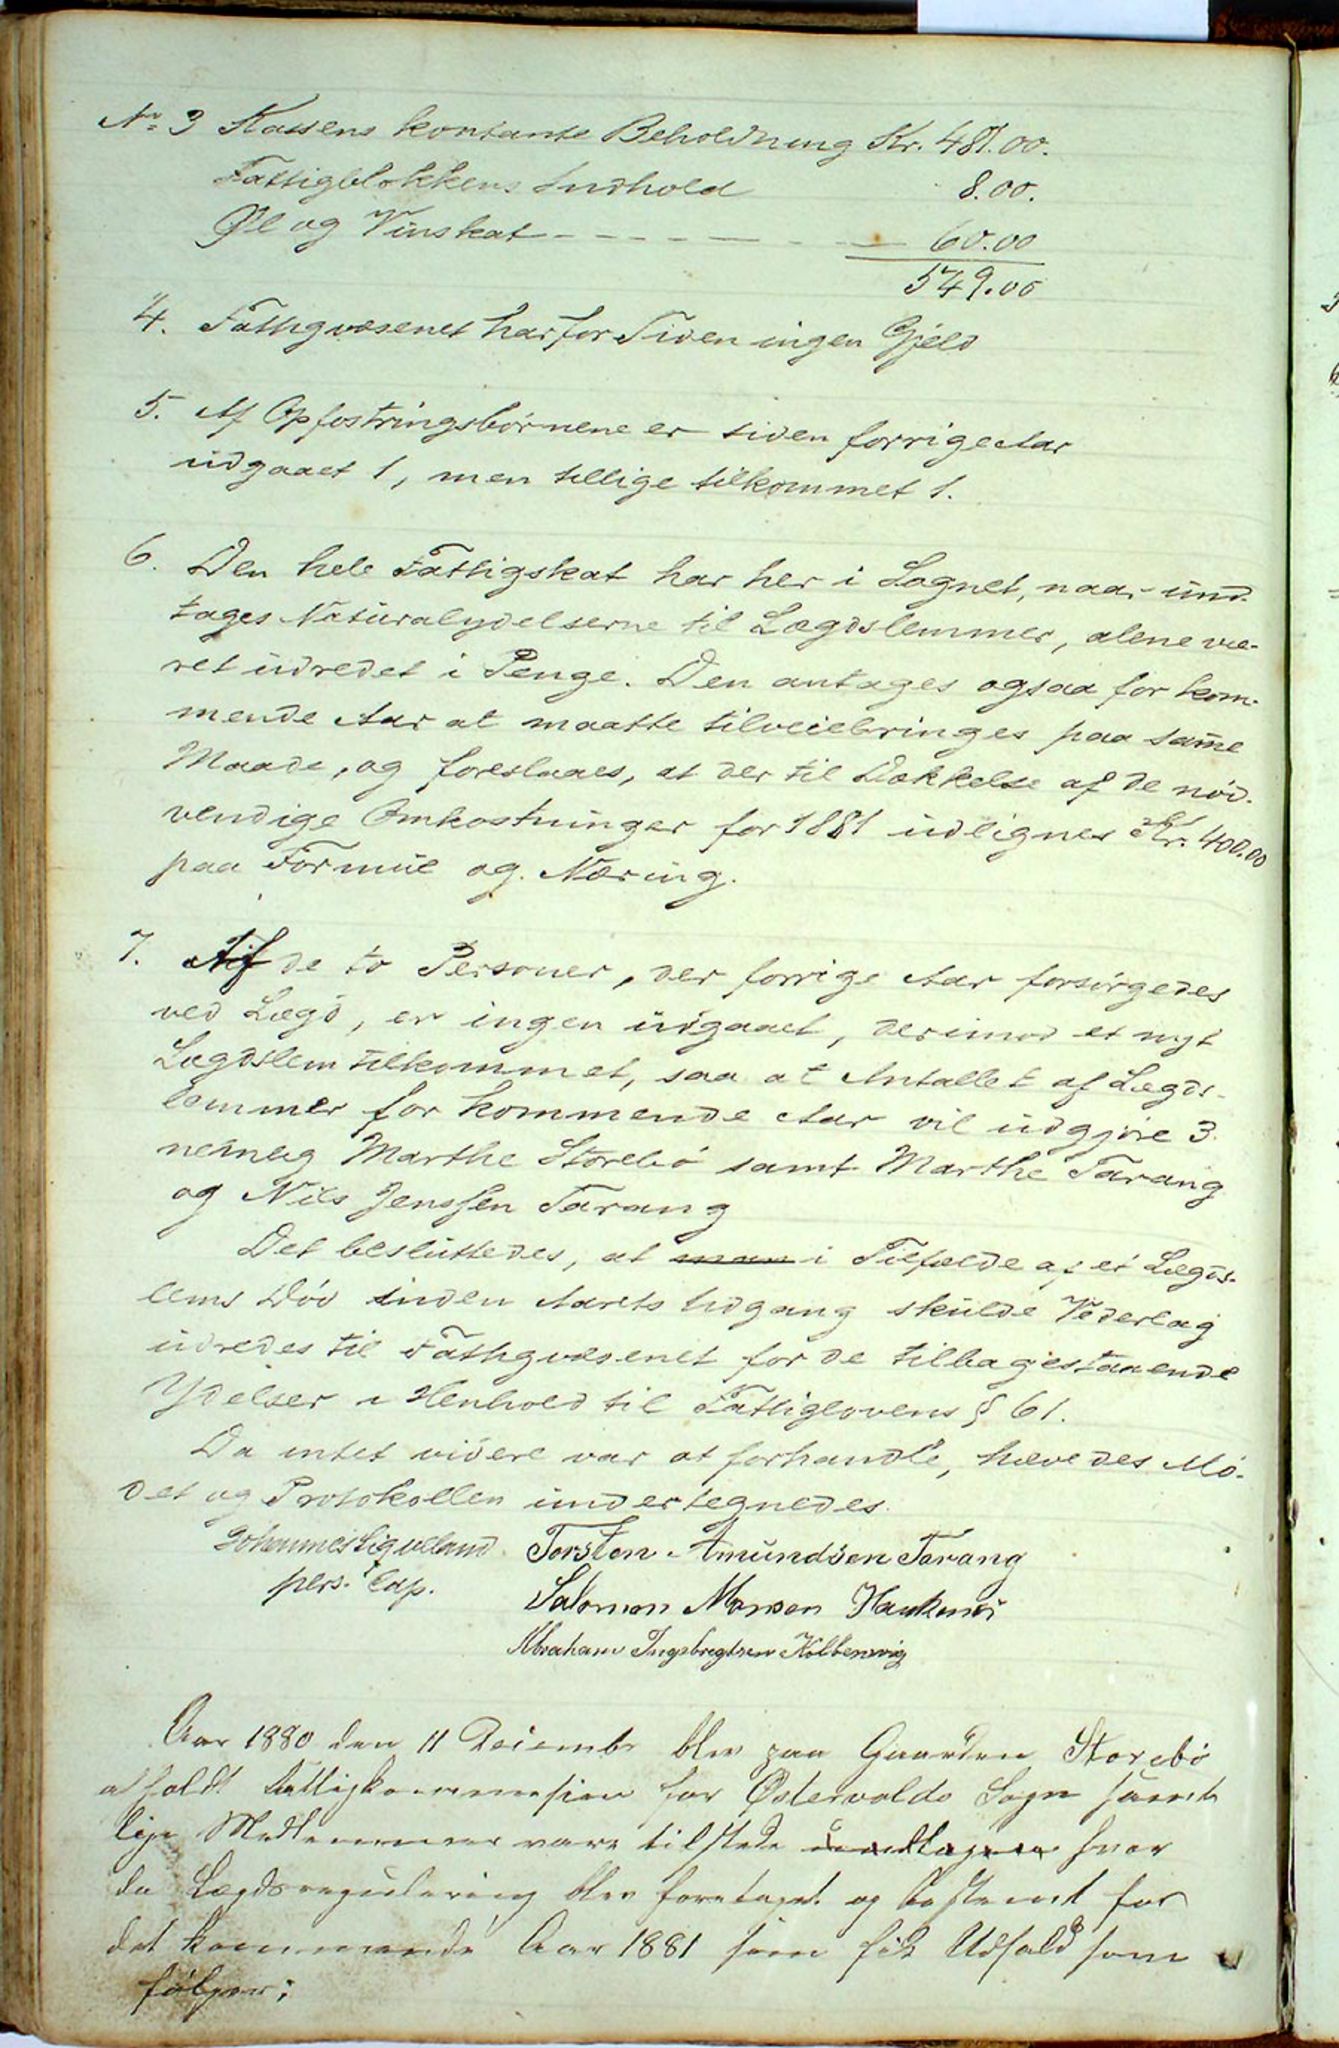 No 3 Kassens kontante Beholdning Kr. 481.00.
Fattigblokkens Indhold 8.00.
Øl og Vinskat - - - - - - - 60.00
549.00
4. Fattigvæsenet har for Tiden ingen Gjeld
5. Af Opfostringsbørnene er siden forrige Aar
udgaaet 1, men tillige tilkommet 1.
6. Den hele Fattigskat har her i Sognet, naar und-
tages Naturalydelserne til Lægdslemmer, alene væ-
ret udredet i Penge. Den antages ogsaa for kom-
mende Aar at maatte tilveiebringes paa samme
Maade, og foreslaaes, at der til Dækkelse af de nød-
vendige Omkostninger for 1881 udlignes Kr. 400.00
paa Formue og Næring.
7. Af de to Personer, der forrige Aar forsørgedes
ved Lægd, er ingen udgaaet, derimod et nyt
Lægdslem tilkommet, saa at Antallet af Lægds-
lemmer for kommende Aar vil udgjøre 3.
nemlig Marthe Storebø samt Marthe Tarang
og Nils Jenssen Tarang
Det besluttedes, at man i Tilfælde af et Lægds-
lems Død inden Aarets Udgang skulde Vederlag
udredes til Fattigvæsenet for de tilbagestaaende
Ydelser i Henhold til Fattiglovens § 61.
Da intet videre var at forhandle, hævedes Mø-
det og Protokollen undertegnedes.
Johannes Sigveland Torsten Amundsen Tarang
pers. Cap. Salomon Monsen Haukenæs
Abraham Ingebregtsen Kolbensvig
Aar 1880 den 11 Decembr blev paa Gaarden Storebø
afholdt Fattigkommission for Østervolds Sogn samt
lige Medlemmer vare tilstede undtagen hvor
da Lægdsregulering blev foretaget og bestemt for
det kommende Aar 1881 som fik Udfald som
følger: